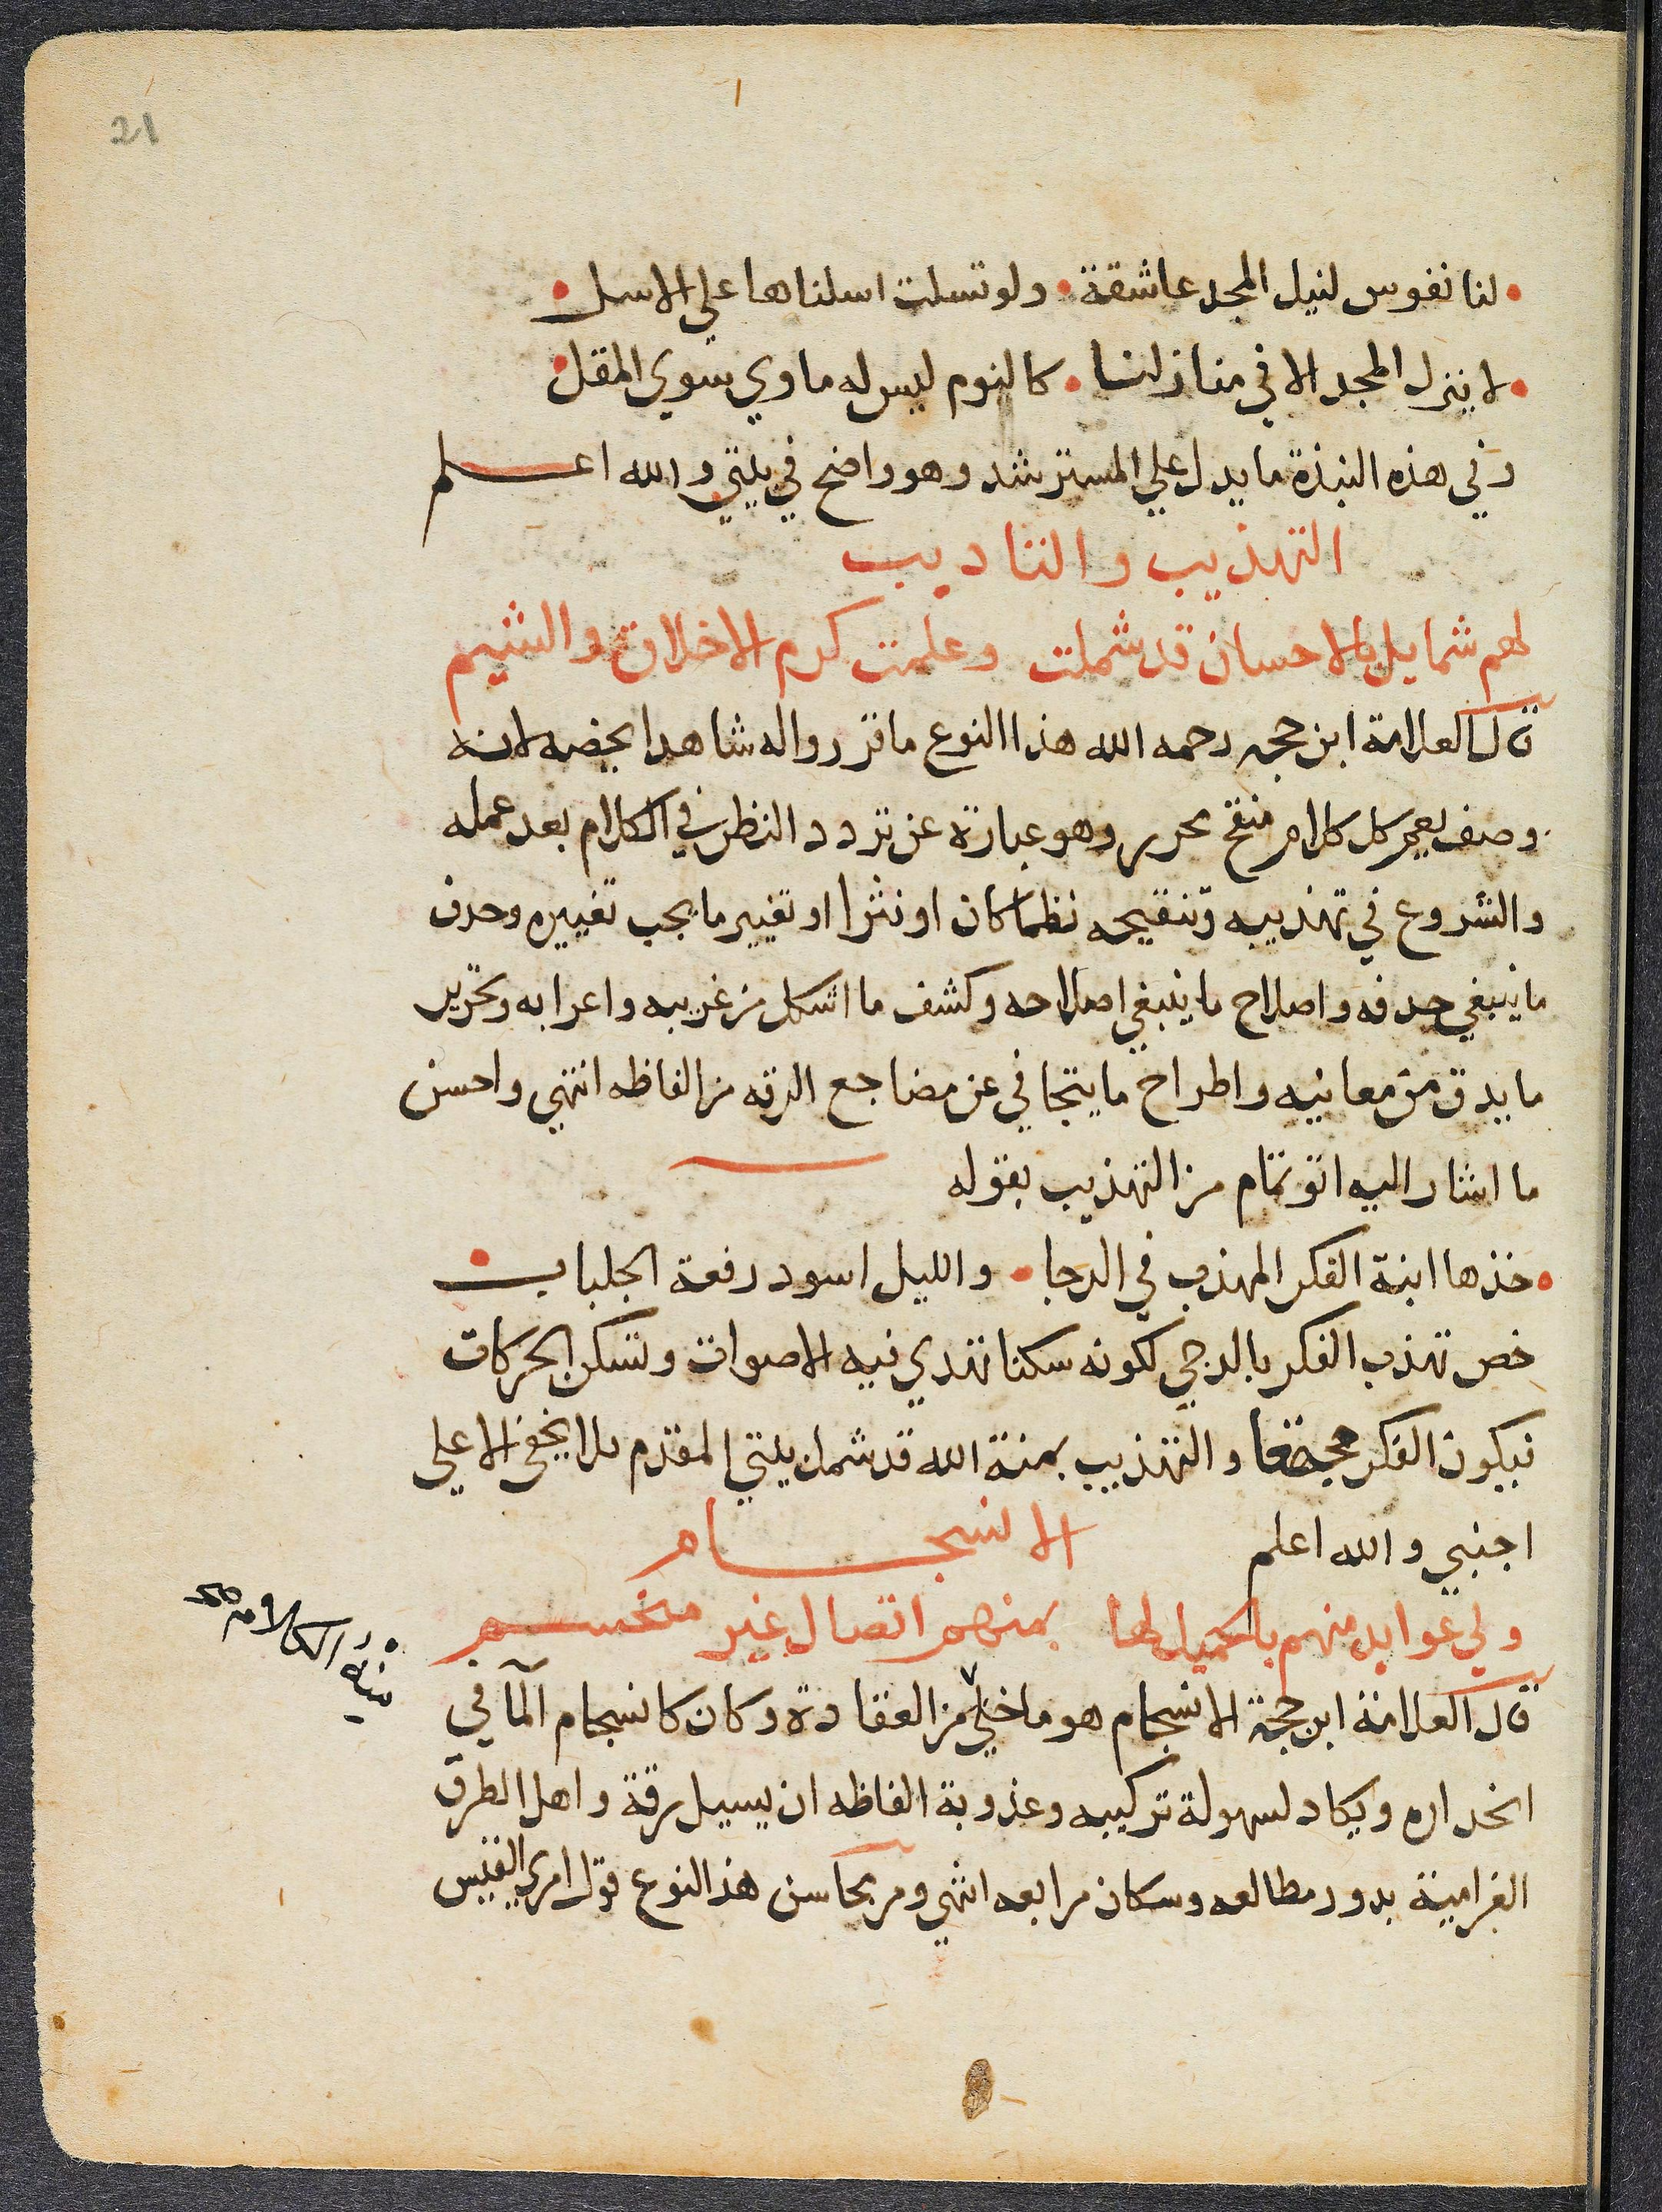 21
لنا نفوس لنيل المجد عاشقة • ولو تسلت اسلناها علي الاسل •
• لا ينزل المجد الا في منازلنا • كالنوم ليس له ماوي سوي المقل
وفي هذه النبذة ما يدل علي المسترشد وهو واضح في بيتي والله اعلم
التهذيب والتاديب
لهم شمايل بالاحسان قد شملت وعلمت كرم الاخلاق والشيم
قال العلامة ابن حجه رحمه الله هذا النوع ما قرروا له شاهدا يخصه لانه
وصف يعم كل كلام منقح محرر وهو عبارة عن تردد النظر في الكلام بعد عمله
والشروع في تهذيبه وتنقيحه نظما كان او نثرا او تغيير ما يجب تغييره وحدف
ما ينبغي حدفه واصلاح ما ينبغي اصلاحه وكشف ما اشكل من غريبه واعرابه وتحرير
ما يدق من معانيه واطراح ما يتجافي عن مضاجع الرقه من الفاظه انتهي واحسن
ما اشار اليه ابو تمام من التهذيب بقوله
• خذها ابنة الفكر المهذب في الدجا • والليل اسود رقعة الجلباب
خص تهذب الفكر بالدجي لكونه سكنا تهدي فيه الاصوات وتسكن الحركات
فيكون الفكر مجتمعا والتهذيب بمنة الله قد شمل بيتي المقدم ولا يخفي الا علي
اجنبي والله اعلم الانسجام
ولي عوايد منهم بالجميل لها بمنهم اتصال غير منحسم
قال العلامة ابن حجة الانسجام هو ما خلي من العقادة وكان كانسجام المآ في
انحداره ويكاد لسهولة تركيبه وعذوبة الفاظه ان يسيل رقة واهل الطرق
الغرامية بدور مطالعه وسكان مرابعه انتهي ومن محاسن هذا النوع قول امري القيس